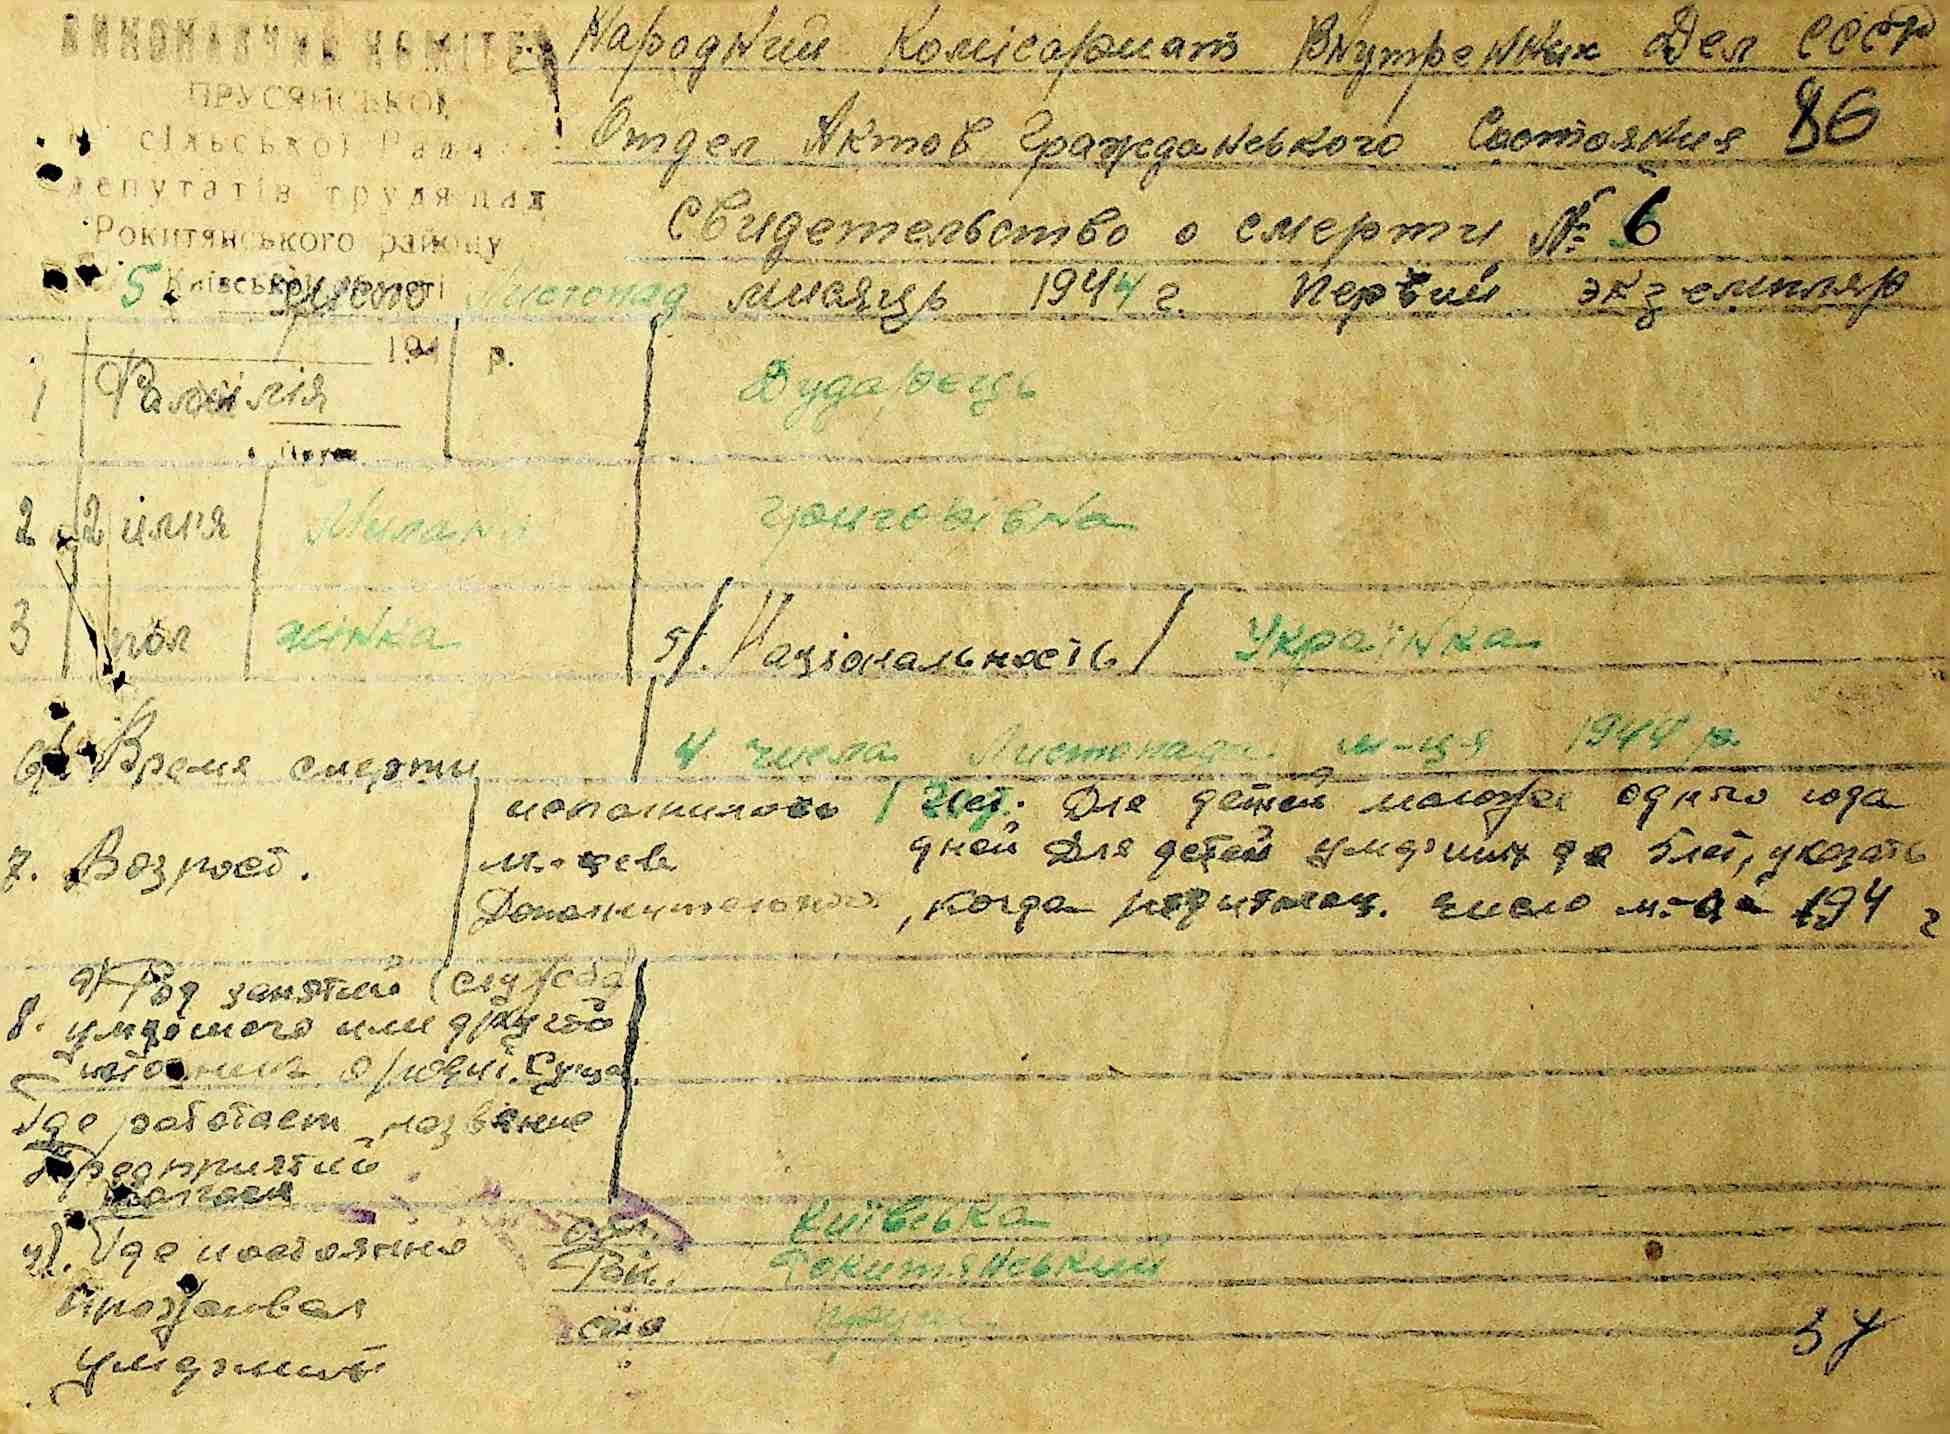 ВИКОНАВЧИЙ КОМІТЕТ
ПРУСЯНСЬКОЇ
сільської Ради
депутатів трудящих
Рокитянського району
Київської області
194 р.
Народний Комісариат Внутренних Дел СССР
Отдел Актов Гражданського Состояния 86
Свидетельство о смерти № 6
5 число Листопад мисяць 1944 г. Первий экземпляр
1 Фамілія Дударець
2 2 имя Милані Григорівна
3 пол жінка 5/. Національность / Українка
6 Время смерти 4 числа Листопада м-ця 1944 р.
7. Возраст. исполнилось 1 лет. Для детей моложе одного года
м-цев дней Для детей умерших до 5 лет, указать
Дополнительно, когда родилась. число м-ца 194 г
8. Род занятий (служба
умершого или другой
Где работает название
Предприятий
Где постоянно обл. Київська
Проживал рай. Рокитянський
умерший село
37